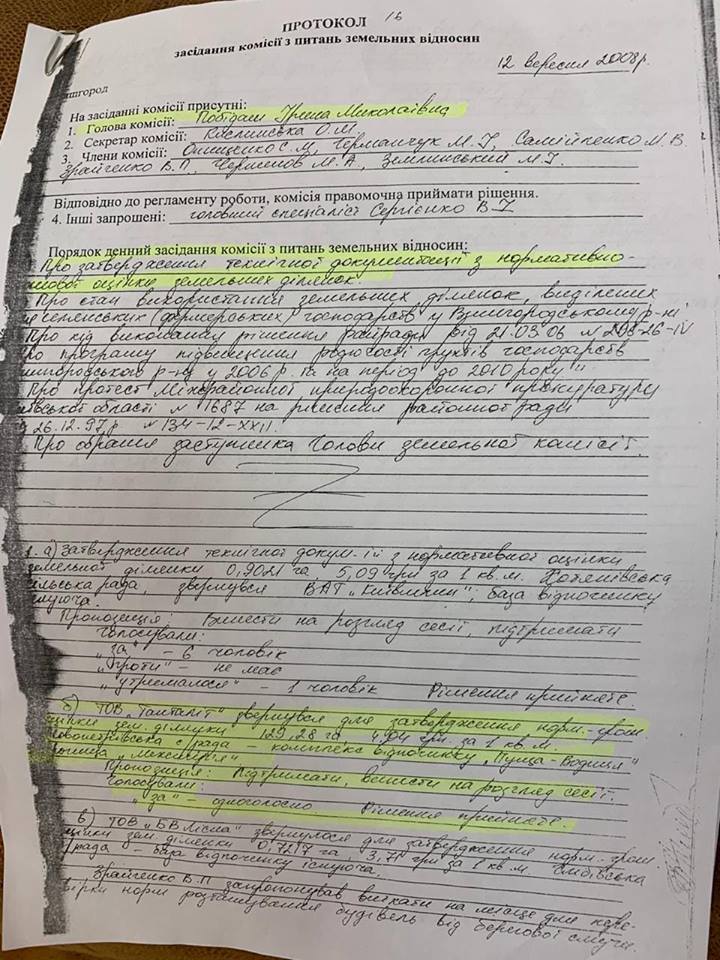 ПРОТОКОЛ 16
засідання комісії з питань земельних відносин
12 вересня 2008р.
ишгород
На засіданні комісії присутні:
1. Голова комісії: Побідаш Ірина Миколаївна
2. Секретар комісії: О.М.
3. Члени комісії: Онищенко С.М, Германчук М.І, Самійленко М.В.
Зрайченко В.П, М.А, Землинський М.І.
Відповідно до регламенту роботи, комісія правомочна приймати рішення.
4. Інші запрошені: головний спеціаліст Сергієнко В.І
Порядок денний засідання комісії з питань земельних відносин:
Про затвердження технічної документації з нормативно-
шової оцінки земельних ділянок.
Про стан використання земельних ділянок, виділених
селянських (фермерських) господарств у Вишгородському р-ні
Про хід виконання рішення райради від 21.03.06 № 298-26-IV
ро програму підвищення родючості грунтів господарств
шгородського р-ну у 2006 р. та на період до 2010 року"
Про протест Міжрайонної природоохоронної прокуратури
ївської області № 1687 на рішення районної ради
26.12.97р № 134-12-XXII.
Про обрання заступника Голови земельної комісії.
1. а) Затвердження технічної докум. ії з нормативної оцінки
земельної ділянки 0,9021 га 5,09 грн за 1 кв.м. Хотянівська
сільська рада, звернувся ВАТ „Київлянин", база відпочинку
існуюча.
Пропозиція: Винести на розгляд сесії, підтримати
Голосували:
„за" – 6 чоловік
„проти" – не має
„утрималося" – 1 чоловік Рішення прийняте.
б) ТОВ „Танталіт" звернувся для затвердження норм.-грош
оцінки зем. ділянки 129,28 га 4,04 грн за 1 кв м.
Новопетрівська с/рада – комплекс відпочинку „Пуща-Водиця"
Пропозиція: Підтримати, винести на розгляд сесії.
Голосували:
„за" – одноголосно. Рішення прийняте.
в) ТОВ „БВ Лісма" звернулося для затвердження норм.-грош
оцінки зем. ділянки 0,7217 га, 3,71 грн за 1 кв.м.
рада – база відпочинку існуюча.
Зрайченко В.П запропонував виїхати на місце для пере-
вірки норм розташування будівель від берегової смуги.